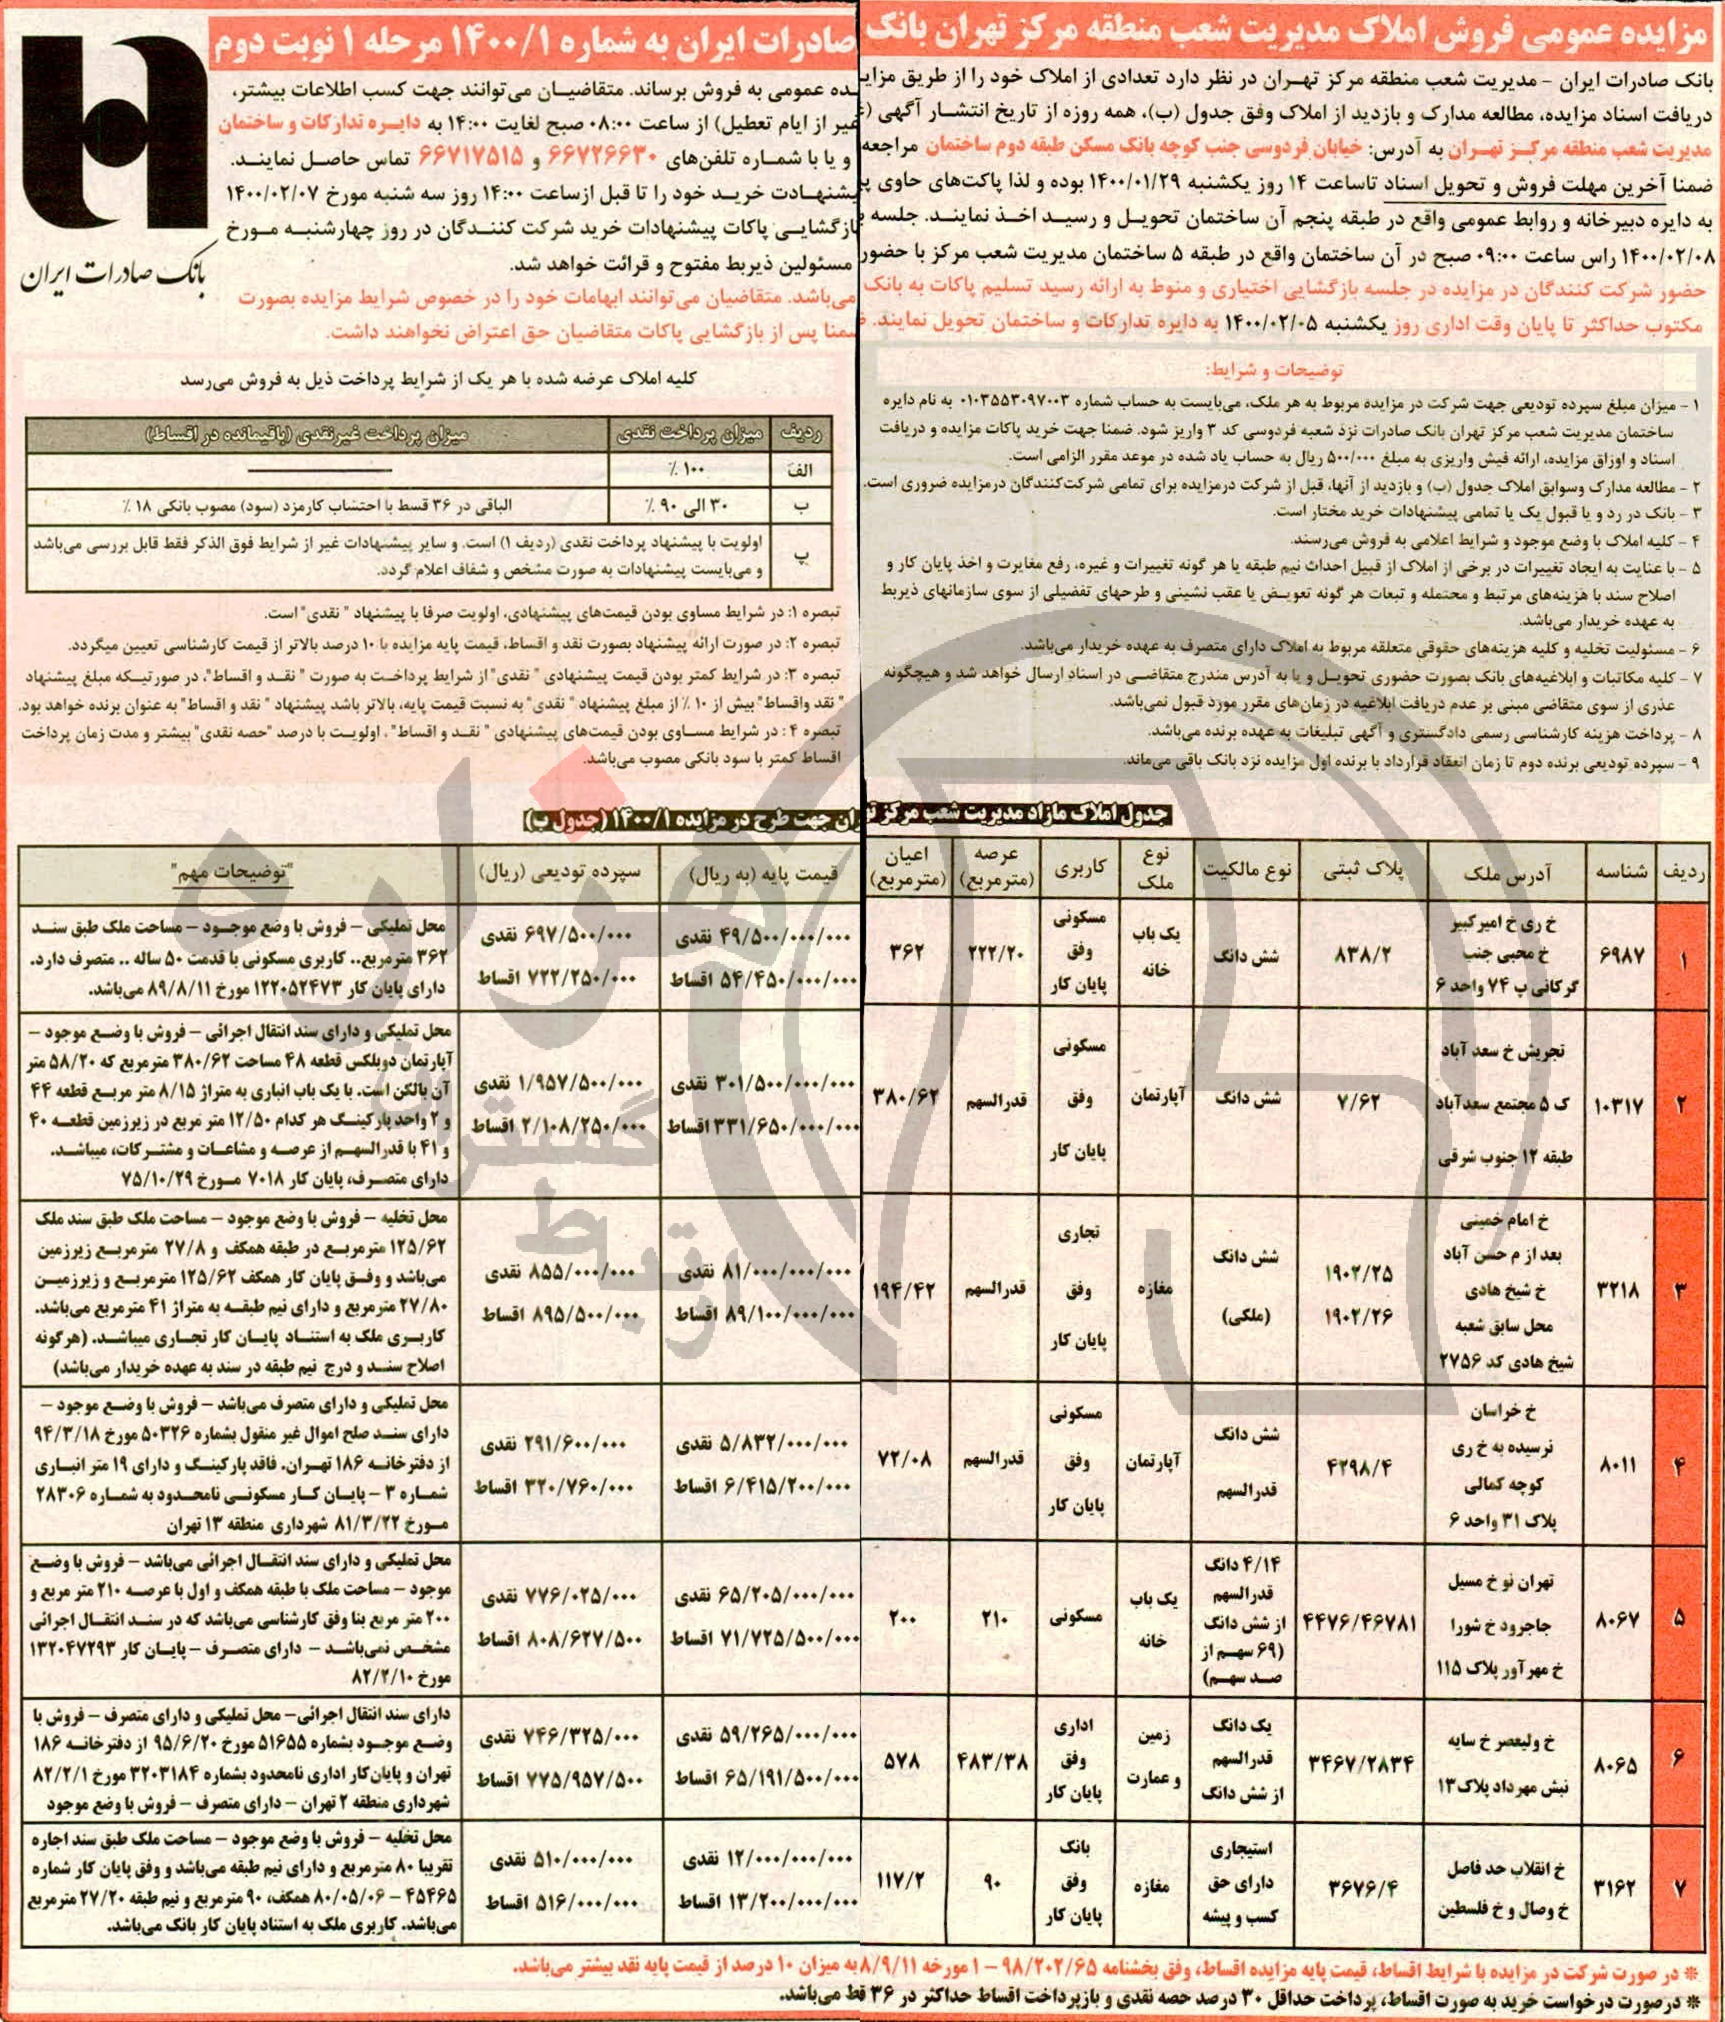 مزایده عمومی فروش املاک مدیریت شعب منطقه مرکز تهران بانک صادرات ایران به شماره ۱۴۰۰/۱ مرحله ۱ نوبت دوم
بانک صادرات ایران
بانک صادرات ایران - مدیریت شعب منطقه مرکز تهران در نظر دارد تعدادی از املاک خود را از طریق مزایده عمومی به فروش برساند. متقاضیان می‌توانند جهت کسب اطلاعات بیشتر،
دریافت اسناد مزایده، مطالعه مدارک و بازدید از املاک وفق جدول (ب)، همه روزه از تاریخ انتشار آگهی (غیر از ایام تعطیل) از ساعت ۰۸:۰۰ صبح لغایت ۱۴:۰۰ به دایره تدارکات و ساختمان
مدیریت شعب منطقه مرکز تهران به آدرس: خیابان فردوسی جنب کوچه بانک مسکن طبقه دوم ساختمان مراجعه و یا با شماره تلفن‌های ۶۶۷۲۶۶۳۰ و ۶۶۷۱۷۵۱۵ تماس حاصل نمایند.
ضمنا آخرین مهلت فروش و تحویل اسناد تاساعت ۱۴ روز یکشنبه ۱۴۰۰/۰۱/۲۹ بوده و لذا پاکت‌های حاوی پیشنهادت خرید خود را تا قبل ازساعت ۱۴:۰۰ روز سه شنبه مورخ ۱۴۰۰/۰۲/۰۷
به دایره دبیرخانه و روابط عمومی واقع در طبقه پنجم آن ساختمان تحویل و رسید اخذ نمایند. جلسه بازگشایی پاکات پیشنهادات خرید شرکت کنندگان در روز چهارشنبه مورخ
۱۴۰۰/۰۲/۰۸ راس ساعت ۰۹:۰۰ صبح در آن ساختمان واقع در طبقه ۵ ساختمان مدیریت شعب مرکز با حضور مسئولین ذیربط مفتوح و قرائت خواهد شد.
حضور شرکت کنندگان در مزایده در جلسه بازگشایی اختیاری و منوط به ارائه رسید تسلیم پاکات به بانک می‌باشد. متقاضیان می‌توانند ابهامات خود را در خصوص شرایط مزایده بصورت
مکتوب حداکثر تا پایان وقت اداری روز یکشنبه ۱۴۰۰/۰۲/۰۵ به دایره تدارکات و ساختمان تحویل نمایند. ضمنا پس از بازگشایی پاکات متقاضیان حق اعتراض نخواهند داشت.
توضیحات و شرایط:
۱ - میزان مبلغ سپرده تودیعی جهت شرکت در مزایده مربوط به هر ملک، می‌بایست به حساب شماره ۰۱۰۳۵۵۳۰۹۷۰۰۳ به نام دایره
ساختمان مدیریت شعب مرکز تهران بانک صادرات نزد شعبه فردوسی کد ۳ واریز شود. ضمنا جهت خرید پاکات مزایده و دریافت
اسناد و اوراق مزایده، ارائه فیش واریزی به مبلغ ۵۰۰/۰۰۰ ریال به حساب یاد شده در موعد مقرر الزامی است.
۲ - مطالعه مدارک وسوابق املاک جدول (ب) و بازدید از آنها، قبل از شرکت درمزایده برای تمامی شرکت‌کنندگان درمزایده ضروری است.
۳ - بانک در رد و یا قبول یک یا تمامی پیشنهادات خرید مختار است.
۴ - کلیه املاک با وضع موجود و شرایط اعلامی به فروش می‌رسند.
۵ - با عنایت به ایجاد تغییرات در برخی از املاک از قبیل احداث نیم طبقه یا هر گونه تغییرات و غیره، رفع مغایرت و اخذ پایان کار و
اصلاح سند با هزینه‌های مرتبط و محتمله و تبعات هر گونه تعویض یا عقب نشینی و طرحهای تفصیلی از سوی سازمانهای ذیربط
به عهده خریدار می‌باشد.
۶ - مسئولیت تخلیه و کلیه هزینه‌های حقوقی متعلقه مربوط به املاک دارای متصرف به عهده خریدار می‌باشد.
۷ - کلیه مکاتبات و ابلاغیه‌های بانک بصورت حضوری تحویل و یا به آدرس مندرج متقاضی در اسناد ارسال خواهد شد و هیچگونه
عذری از سوی متقاضی مبنی بر عدم دریافت ابلاغیه در زمان‌های مقرر مورد قبول نمی‌باشد.
۸ - پرداخت هزینه کارشناسی رسمی دادگستری و آگهی تبلیغات به عهده برنده می‌باشد.
۹ - سپرده تودیعی برنده دوم تا زمان انعقاد قرارداد با برنده اول مزایده نزد بانک باقی می‌ماند.
کلیه املاک عرضه شده با هر یک از شرایط پرداخت ذیل به فروش می‌رسد
ردیف میزان پرداخت نقدی میزان پرداخت غیرنقدی (باقیمانده در اقساط)
الف ۱۰۰ ٪
ب ۳۰ الی ۹۰ ٪ الباقی در ۳۶ قسط با احتساب کارمزد (سود) مصوب بانکی ۱۸ ٪
پ اولویت با پیشنهاد پرداخت نقدی (ردیف ۱) است. و سایر پیشنهادات غیر از شرایط فوق الذکر فقط قابل بررسی می‌باشد
و می‌بایست پیشنهادات به صورت مشخص و شفاف اعلام گردد.
تبصره ۱: در شرایط مساوی بودن قیمت‌های پیشنهادی، اولویت صرفا با پیشنهاد " نقدی" است.
تبصره ۲: در صورت ارائه پیشنهاد بصورت نقد و اقساط، قیمت پایه مزایده با ۱۰ درصد بالاتر از قیمت کارشناسی تعیین میگردد.
تبصره ۳: در شرایط کمتر بودن قیمت پیشنهادی " نقدی" از شرایط پرداخت به صورت " نقد و اقساط"، در صورتیکه مبلغ پیشنهاد
" نقد واقساط" بیش از ۱۰ ٪ از مبلغ پیشنهاد " نقدی" به نسبت قیمت پایه، بالاتر باشد پیشنهاد " نقد و اقساط" به عنوان برنده خواهد بود.
تبصره ۴: در شرایط مساوی بودن قیمت‌های پیشنهادی " نقد و اقساط" ، اولویت با درصد "حصه نقدی" بیشتر و مدت زمان پرداخت
اقساط کمتر با سود بانکی مصوب می‌باشد.
جدول املاک مازاد مدیریت شعب مرکز تهران جهت طرح در مزایده ۱۴۰۰/۱ (جدول ب)
ردیف شناسه آدرس ملک پلاک ثبتی نوع مالکیت نوع ملک کاربری عرصه (مترمربع) اعیان (مترمربع) قیمت پایه (به ریال) سپرده تودیعی (ریال) "توضیحات مهم"
۱ ۶۹۸۷
خ ری خ امیرکبیر
خ محبی جنب
گرکانی پ ۷۴ واحد ۶
۸۳۸/۲ شش دانگ
یک باب
خانه
مسکونی
وفق
پایان کار
۲۲۲/۲۰ ۳۶۲
۴۹/۵۰۰/۰۰۰/۰۰۰ نقدی
۵۴/۴۵۰/۰۰۰/۰۰۰ اقساط
۶۹۷/۵۰۰/۰۰۰ نقدی
۷۲۲/۲۵۰/۰۰۰ اقساط
محل تملیکی - فروش با وضع موجود - مساحت ملک طبق سند
۳۶۲ مترمربع.. کاربری مسکونی با قدمت ۵۰ ساله .. متصرف دارد.
دارای پایان کار ۱۲۲۰۵۲۴۷۳ مورخ ۸۹/۸/۱۱ می‌باشد.
۲ ۱۰۳۱۷
تجریش خ سعد آباد
ک ۵ مجتمع سعدآباد
طبقه ۱۲ جنوب شرقی
۷/۶۲ شش دانگ آپارتمان
مسکونی
وفق
پایان کار
قدرالسهم ۳۸۰/۶۲
۳۰۱/۵۰۰/۰۰۰/۰۰۰ نقدی
۳۳۱/۶۵۰/۰۰۰/۰۰۰ اقساط
۱/۹۵۷/۵۰۰/۰۰۰ نقدی
۲/۱۰۸/۲۵۰/۰۰۰ اقساط
محل تملیکی و دارای سند انتقال اجرائی - فروش با وضع موجود -
آپارتمان دوبلکس قطعه ۴۸ مساحت ۳۸۰/۶۲ مترمربع که ۵۸/۲۰ متر
آن بالکن است. با یک باب انباری به متراژ ۸/۱۵ متر مربع قطعه ۴۴
و ۲ واحد پارکینگ هر کدام ۱۲/۵۰ متر مربع در زیرزمین قطعه ۴۰
و ۴۱ با قدرالسهم از عرصه و مشاعات و مشترکات، میباشد.
دارای متصرف، پایان کار ۷۰۱۸ مورخ ۷۵/۱۰/۲۹
۳ ۳۲۱۸
خ امام خمینی
بعد از م حسن آباد
خ شیخ هادی
محل سابق شعبه
شیخ هادی کد ۲۷۵۶
۱۹۰۲/۲۵
۱۹۰۲/۲۶
شش دانگ
(ملکی)
مغازه
تجاری
وفق
پایان کار
قدرالسهم ۱۹۴/۴۲
۸۱/۰۰۰/۰۰۰/۰۰۰ نقدی
۸۹/۱۰۰/۰۰۰/۰۰۰ اقساط
۸۵۵/۰۰۰/۰۰۰ نقدی
۸۹۵/۵۰۰/۰۰۰ اقساط
محل تخلیه - فروش با وضع موجود - مساحت ملک طبق سند ملک
۱۲۵/۶۲ مترمربع در طبقه همکف و ۲۷/۸ مترمربع زیرزمین
می‌باشد و وفق پایان کار همکف ۱۲۵/۶۲ مترمربع و زیرزمین
۲۷/۸۰ مترمربع و دارای نیم طبقه به متراژ ۴۱ مترمربع می‌باشد.
کاربری ملک به استناد پایان کار تجاری میباشد. (هرگونه
اصلاح سند و درج نیم طبقه در سند به عهده خریدار می‌باشد)
۴ ۸۰۱۱
خ خراسان
نرسیده به خ ری
کوچه کمالی
پلاک ۳۱ واحد ۶
۴۲۹۸/۴
شش دانگ
قدرالسهم
آپارتمان
مسکونی
وفق
پایان کار
قدرالسهم ۷۲/۰۸
۵/۸۳۲/۰۰۰/۰۰۰ نقدی
۶/۴۱۵/۲۰۰/۰۰۰ اقساط
۲۹۱/۶۰۰/۰۰۰ نقدی
۳۲۰/۷۶۰/۰۰۰ اقساط
محل تملیکی و دارای متصرف می‌باشد - فروش با وضع موجود -
دارای سند صلح اموال غیر منقول بشماره ۵۰۳۲۶ مورخ ۹۴/۳/۱۸
از دفترخانه ۱۸۶ تهران. فاقد پارکینگ و دارای ۱۹ متر انباری
شماره ۳ - پایان کار مسکونی نامحدود به شماره ۲۸۳۰۶
مورخ ۸۱/۳/۲۲ شهرداری منطقه ۱۳ تهران
۵ ۸۰۶۷
تهران نو خ مسیل
جاجرود خ شورا
خ مهرآور پلاک ۱۱۵
۴۴۷۶/۴۶۷۸۱
۴/۱۴ دانگ
قدرالسهم
از شش دانگ
(۶۹ سهم از
صد سهم)
یک باب
خانه
مسکونی ۲۱۰ ۲۰۰
۶۵/۲۰۵/۰۰۰/۰۰۰ نقدی
۷۱/۷۲۵/۵۰۰/۰۰۰ اقساط
۷۷۶/۰۲۵/۰۰۰ نقدی
۸۰۸/۶۲۷/۵۰۰ اقساط
محل تملیکی و دارای سند انتقال اجرائی می‌باشد - فروش با وضع
موجود - مساحت ملک با طبقه همکف و اول با عرصه ۲۱۰ متر مربع و
۲۰۰ متر مربع بنا وفق کارشناسی می‌باشد که در سند انتقال اجرائی
مشخص نمی‌باشد - دارای متصرف - پایان کار ۱۳۲۰۴۷۲۹۳
مورخ ۸۲/۲/۱۰
۶ ۸۰۶۵
خ ولیعصر خ سایه
نبش مهرداد پلاک۱۳
۳۴۶۷/۲۸۳۴
یک دانگ
قدرالسهم
از شش دانگ
زمین
و عمارت
اداری
وفق
پایان کار
۴۸۳/۳۸ ۵۷۸
۵۹/۲۶۵/۰۰۰/۰۰۰ نقدی
۶۵/۱۹۱/۵۰۰/۰۰۰ اقساط
۷۴۶/۳۲۵/۰۰۰ نقدی
۷۷۵/۹۵۷/۵۰۰ اقساط
دارای سند انتقال اجرائی- محل تملیکی و دارای متصرف - فروش با
وضع موجود بشماره ۵۱۶۵۵ مورخ ۹۵/۶/۲۰ از دفترخانه ۱۸۶
تهران و پایان‌کار اداری نامحدود بشماره ۳۲۰۳۱۸۴ مورخ ۸۲/۲/۱
شهرداری منطقه ۲ تهران - دارای متصرف - فروش با وضع موجود
۷ ۳۱۶۲
خ انقلاب حد فاصل
خ وصال و خ فلسطین
۳۶۷۶/۴
استیجاری
دارای حق
کسب و پیشه
مغازه
بانک
وفق
پایان کار
۹۰ ۱۱۷/۲
۱۲/۰۰۰/۰۰۰/۰۰۰ نقدی
۱۳/۲۰۰/۰۰۰/۰۰۰ اقساط
۵۱۰/۰۰۰/۰۰۰ نقدی
۵۱۶/۰۰۰/۰۰۰ اقساط
محل تخلیه - فروش با وضع موجود - مساحت ملک طبق سند اجاره
تقریبا ۸۰ مترمربع و دارای نیم طبقه می‌باشد و وفق پایان کار شماره
۴۵۴۶۵ - ۸۰/۰۵/۰۶ همکف، ۹۰ مترمربع و نیم طبقه ۲۷/۲۰ مترمربع
می‌باشد. کاربری ملک به استناد پایان کار بانک می‌باشد.
* در صورت شرکت در مزایده با شرایط اقساط، قیمت پایه مزایده اقساط، وفق بخشنامه ۹۸/۲۰۲/۶۵ - ۱ مورخه ۸/۹/۱۱ به میزان ۱۰ درصد از قیمت پایه نقد بیشتر می‌باشد.
* درصورت درخواست خرید به صورت اقساط، پرداخت حداقل ۳۰ درصد حصه نقدی و بازپرداخت اقساط حداکثر در ۳۶ قط می‌باشد.
هزاره
گستر
ارتباط